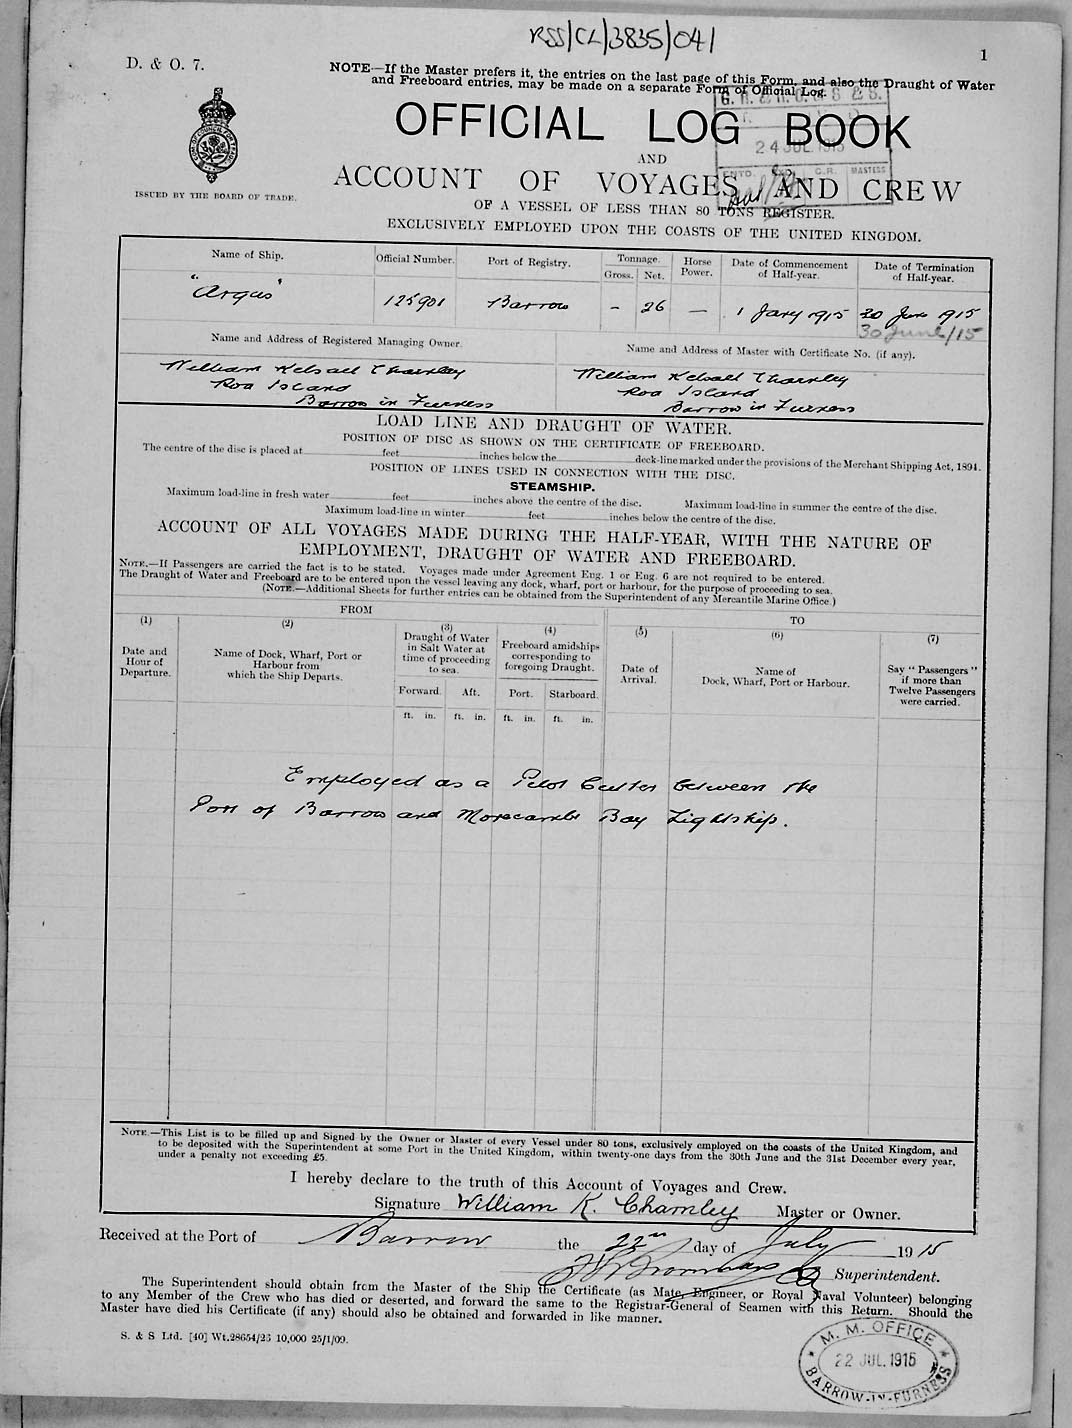 RSS/CL/3835/041
1
D. & O. 7.
NOTE—If the Master prefers it, the entries on the last page of this Form, and also the Draught of Water
and Freeboard entries, may be made on a separate Form of Official Log.
OFFICIAL LOG BOOK
24 JUL. 1915
AND
C.R. MASTERS
ACCOUNT OF VOYAGES AND CREW
ISSUED BY THE BOARD OF TRADE.
OF A VESSEL OF LESS THAN 80 TONS REGISTER.
EXCLUSIVELY EMPLOYED UPON THE COASTS OF THE UNITED KINGDOM.
Name of Ship. Official Number. Port of Registry. Tonnage. Horse Power. Date of Commencement of Half-year. Date of Termination of Half-year.
Gross. Net.
"Argus" 125901 Barrow - 26 — 1 Jany 1915 30 June 1915
30 June/15
Name and Address of Registered Managing Owner. Name and Address of Master with Certificate No. (if any).
William Kelsall Charnley William Kelsall Charnley
Roa Island Roa Island
Barrow in Furness Barrow in Furness
LOAD LINE AND DRAUGHT OF WATER.
POSITION OF DISC AS SHOWN ON THE CERTIFICATE OF FREEBOARD.
The centre of the disc is placed at feet inches below the deck-line marked under the provisions of the Merchant Shipping Act, 1894.
POSITION OF LINES USED IN CONNECTION WITH THE DISC.
STEAMSHIP.
Maximum load-line in fresh water feet inches above the centre of the disc. Maximum load-line in summer the centre of the disc.
Maximum load-line in winter feet inches below the centre of the disc.
ACCOUNT OF ALL VOYAGES MADE DURING THE HALF-YEAR, WITH THE NATURE OF
EMPLOYMENT, DRAUGHT OF WATER AND FREEBOARD.
NOTE.—If Passengers are carried the fact is to be stated. Voyages made under Agreement Eng. 1 or Eng. 6 are not required to be entered.
The Draught of Water and Freeboard are to be entered upon the vessel leaving any dock, wharf, port or harbour, for the purpose of proceeding to sea.
(NOTE.—Additional Sheets for further entries can be obtained from the Superintendent of any Mercantile Marine Office.)
FROM TO
(1) (2) (3) (4) (5) (6) (7)
Date and Hour of Departure.
Name of Dock, Wharf, Port or Harbour from which the Ship Departs.
Draught of Water in Salt Water at time of proceeding to sea.
Freeboard amidships corresponding to foregoing Draught.
Date of Arrival.
Name of Dock, Wharf, Port or Harbour.
Say "Passengers" if more than Twelve Passengers were carried.
Forward. Aft. Port. Starboard.
ft. in. ft. in. ft. in. ft. in.
Employed as a Pilot Cutter between the
Port of Barrow and Morecambe Bay Lightship.
NOTE.—This List is to be filled up and Signed by the Owner or Master of every Vessel under 80 tons, exclusively employed on the coasts of the United Kingdom, and
to be deposited with the Superintendent at some Port in the United Kingdom, within twenty-one days from the 30th June and the 31st December every year,
under a penalty not exceeding £5.
I hereby declare to the truth of this Account of Voyages and Crew.
Signature William K. Charnley Master or Owner.
Received at the Port of Barrow the 22nd day of July 1915
Superintendent.
The Superintendent should obtain from the Master of the Ship the Certificate (as Mate, Engineer, or Royal Naval Volunteer) belonging
to any Member of the Crew who has died or deserted, and forward the same to the Registrar-General of Seamen with this Return. Should the
Master have died his Certificate (if any) should also be obtained and forwarded in like manner.
S. & S Ltd. [40] Wt.28654/23 10,000 25/1/09.
M. M. OFFICE
22 JUL. 1915
BARROW-IN-FURNESS